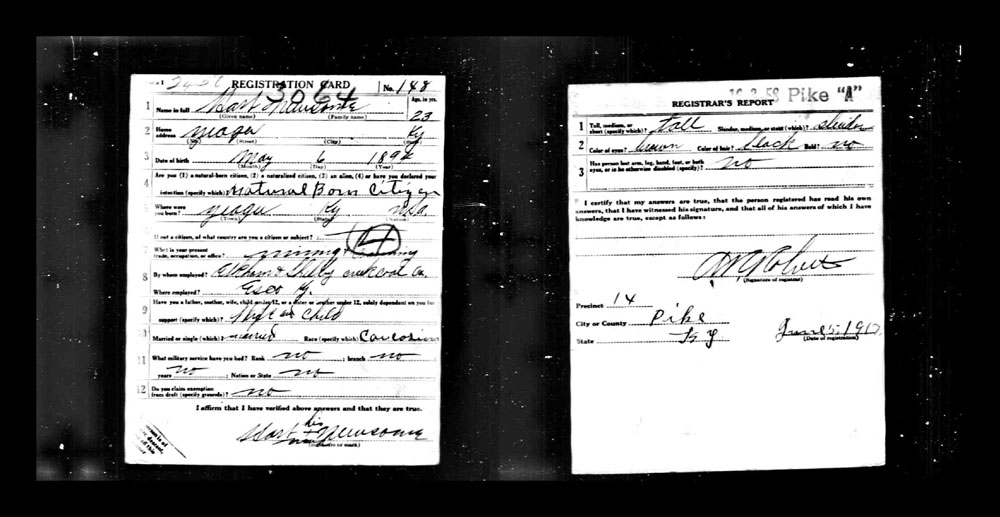 REGISTRATION CARD No. 148
3084
1 Name in full Hart Newsome Age, in yrs. 23
(Given name) (Family name)
2 Home address Yeager Ky
(No.) (Street) (City) (State)
3 Date of birth May 6 1894
(Month) (Day) (Year)
4 Are you (1) a natural-born citizen, (2) a naturalized citizen, (3) an alien, (4) or have you declared your
intention (specify which)? Natural Born Citizen
Where were you born? Yeager Ky USA
(Town) (State) (Nation)
If not a citizen, of what country are you a citizen or subject?
4
What is your present trade, occupation, or office? mining
8 By whom employed? Elkhorn & Shelby creek coal Co
Where employed? Esco Ky.
9 Have you a father, mother, wife, child under 12, or a sister or brother under 12, solely dependent on you for
support (specify which)? Wife and Child
10 Married or single (which)? married Race (specify which)? Caucasian
11 What military service have you had? Rank no ; branch no
years no ; Nation or State no
12 Do you claim exemption from draft (specify grounds)? no
I affirm that I have verified above answers and that they are true.
his
Hart + Newsome
mark
(Signature or mark)
Pike "A"
REGISTRAR'S REPORT
1 Tall, medium, or short (specify which)? Tall Slender, medium, or stout (which)? slender
2 Color of eyes? brown Color of hair? black Bald? no
3 Has person lost arm, leg, hand, foot, or both eyes, or is he otherwise disabled (specify)? no
I certify that my answers are true, that the person registered has read his own
answers, that I have witnessed his signature, and that all of his answers of which I have
knowledge are true, except as follows:
(Signature of registrar)
Precinct 14
City or County Pike
State Ky June 5, 1917
(Date of registration)